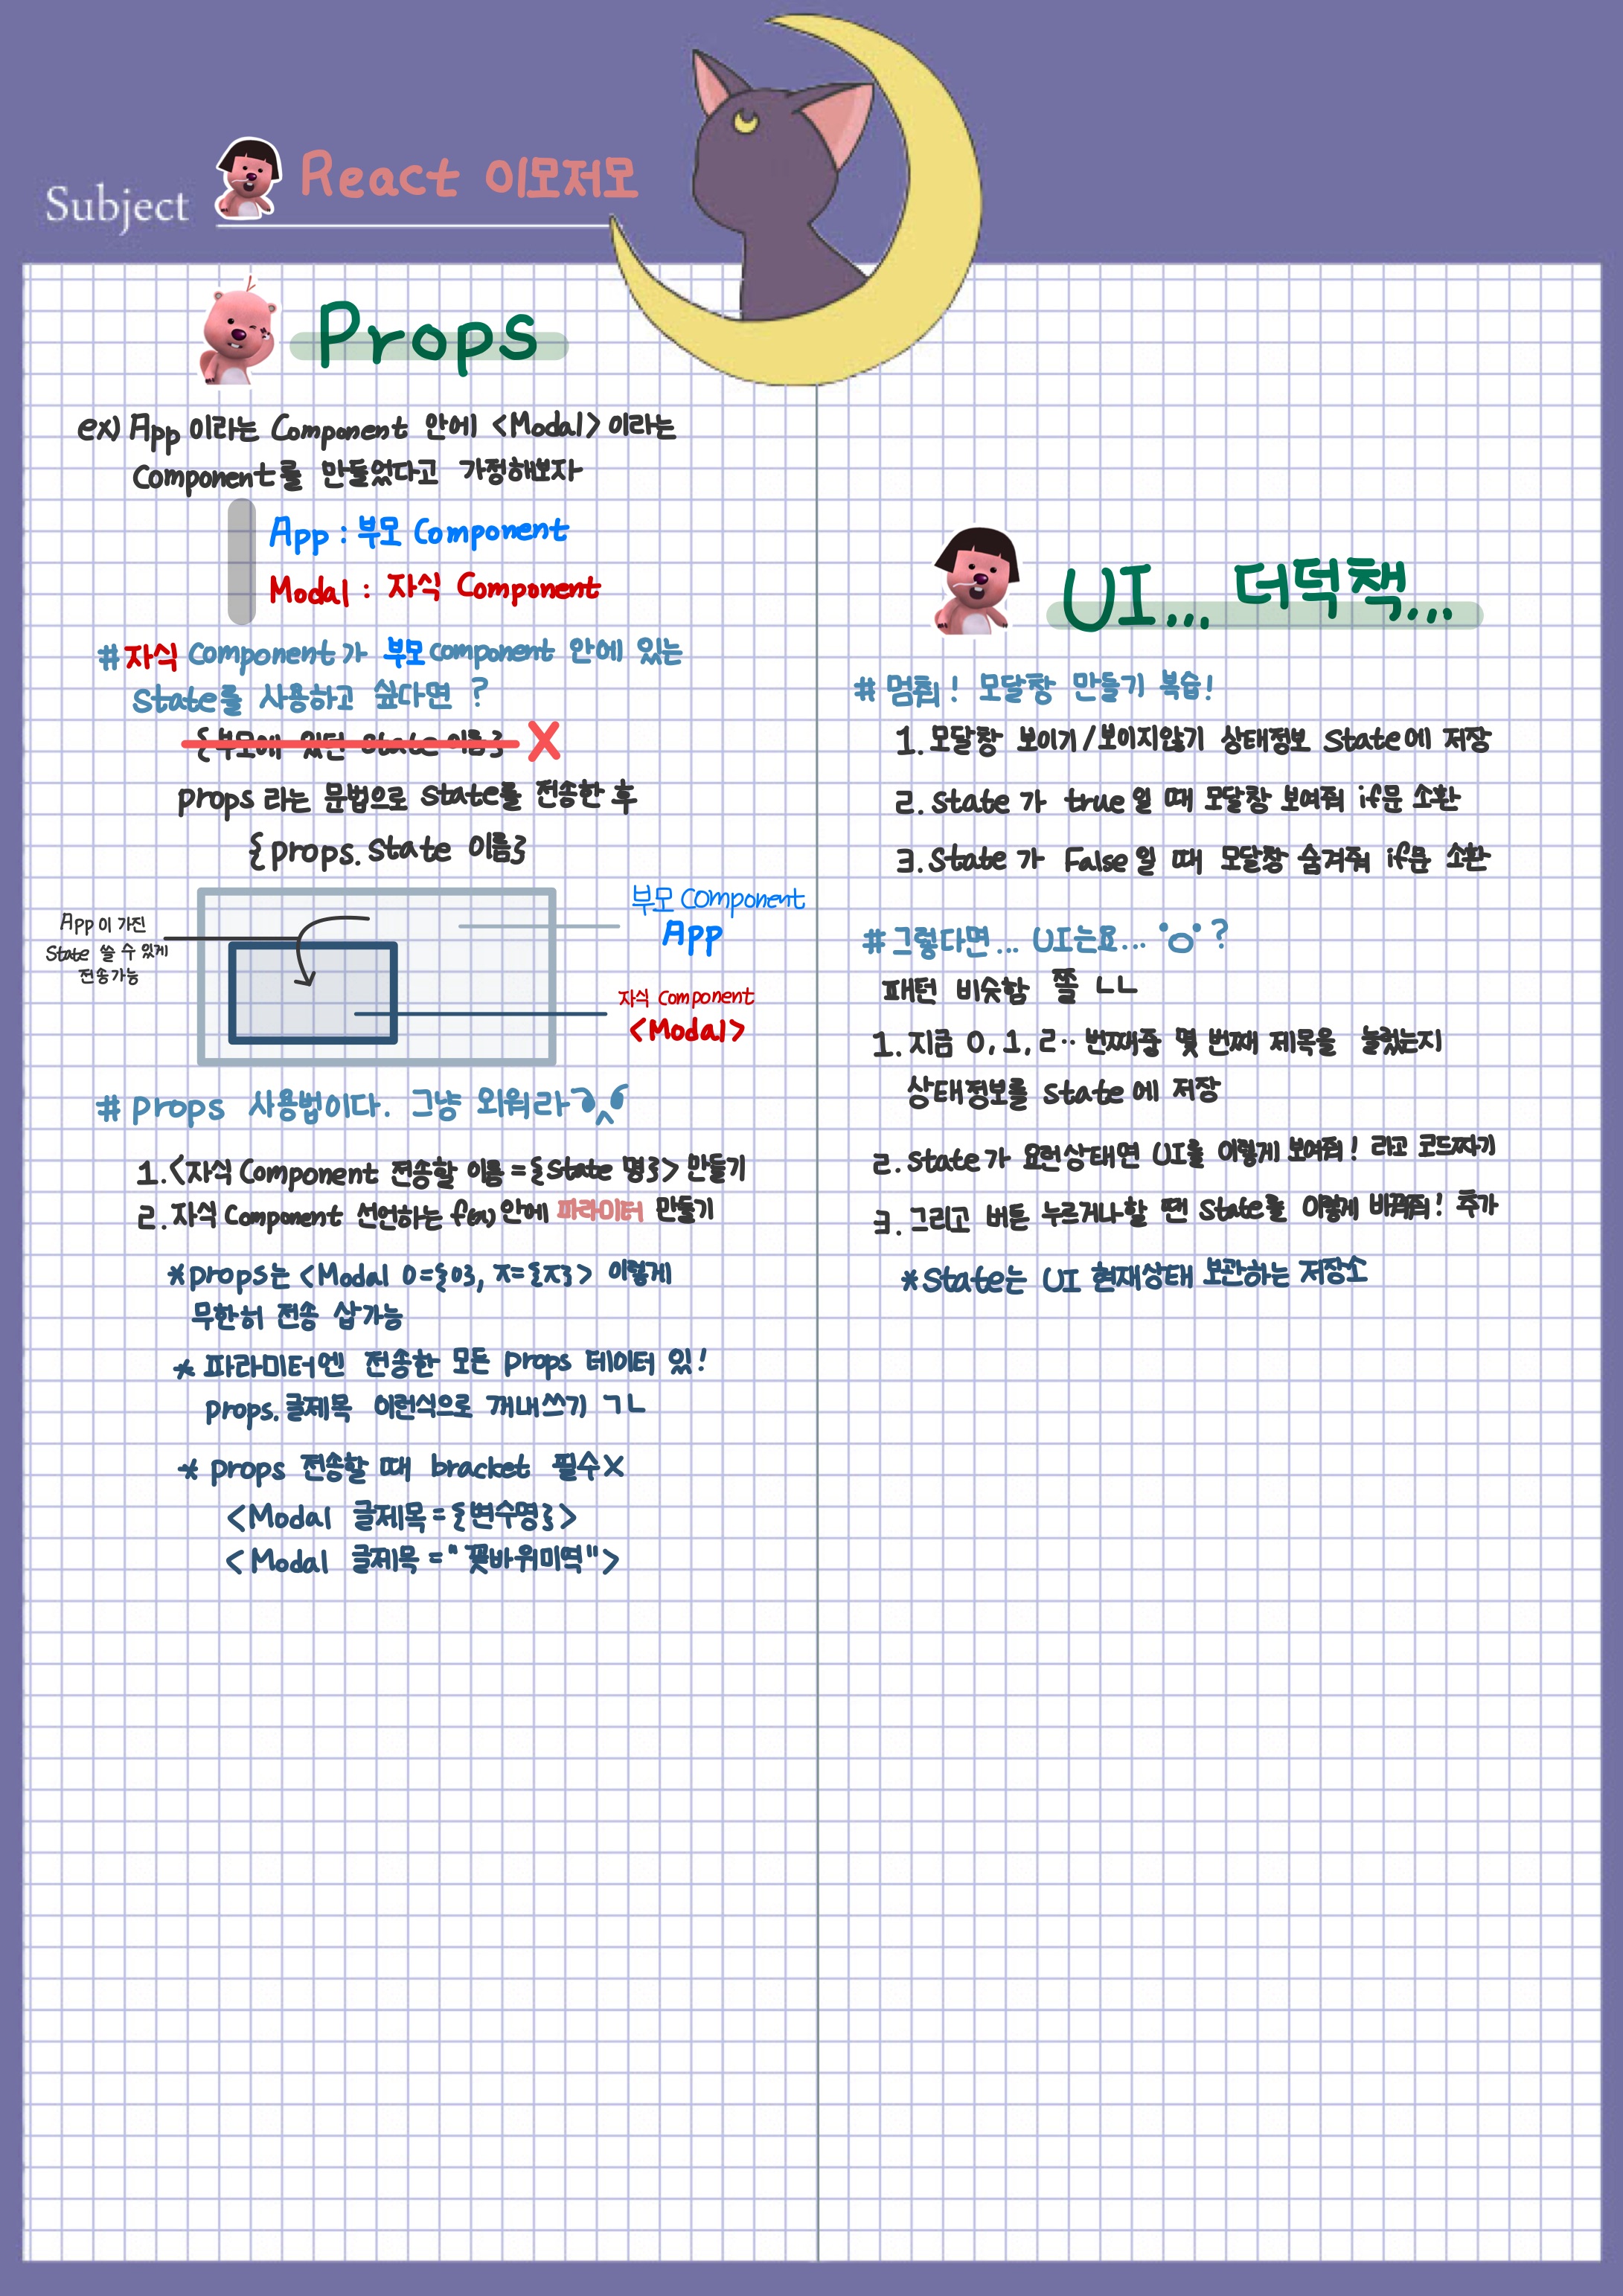 Subject
React 이모저모
Props
ex) App 이라는 Component 안에 <Modal> 이라는
Component를 만들었다고 가정해보자
App : 부모 Component
Modal : 자식 Component
# 자식 Component가 부모 component 안에 있는
State를 사용하고 싶다면 ?
{부모에 있던 state 이름} X
props 라는 문법으로 state를 전송한 후
{props. state 이름}
App이 가진
State 쓸 수 있게
전송가능
부모 Component
App
자식 Component
<Modal>
# props 사용법이다. 그냥 외워라
1. <자식 Component 전송할 이름 = {state 명}> 만들기
2. 자식 Component 선언하는 f(x) 안에 파라미터 만들기
* props는 <Modal ㅇ={ㅇ}, ㅈ={ㅈ}> 이렇게
무한히 전송 쌉가능
* 파라미터엔 전송한 모든 props 데이터 있!
props. 글제목 이런식으로 꺼내쓰기 ㄱㄴ
* props 전송할 때 bracket 필수 X
<Modal 글제목 = {변수명}>
<Modal 글제목 = "꽃바위미역">
UI... 더덕책...
# 멈춰! 모달창 만들기 복습!
1. 모달창 보이기/보이지않기 상태정보 state에 저장
2. state 가 true 일 때 모달창 보여줘 if문 소환
3. state 가 False 일 때 모달창 숨겨줘 if문 소환
# 그렇다면... UI는요... °o° ?
패턴 비슷함 쫄 ㄴㄴ
1. 지금 0, 1, 2·· 번째중 몇 번째 제목을 눌렀는지
상태정보를 state 에 저장
2. state가 요런상태면 UI를 이렇게 보여줘! 라고 코드짜기
3. 그리고 버튼 누르거나할 땐 state를 이렇게 바꿔줘! 추가
* State는 UI 현재상태 보관하는 저장소